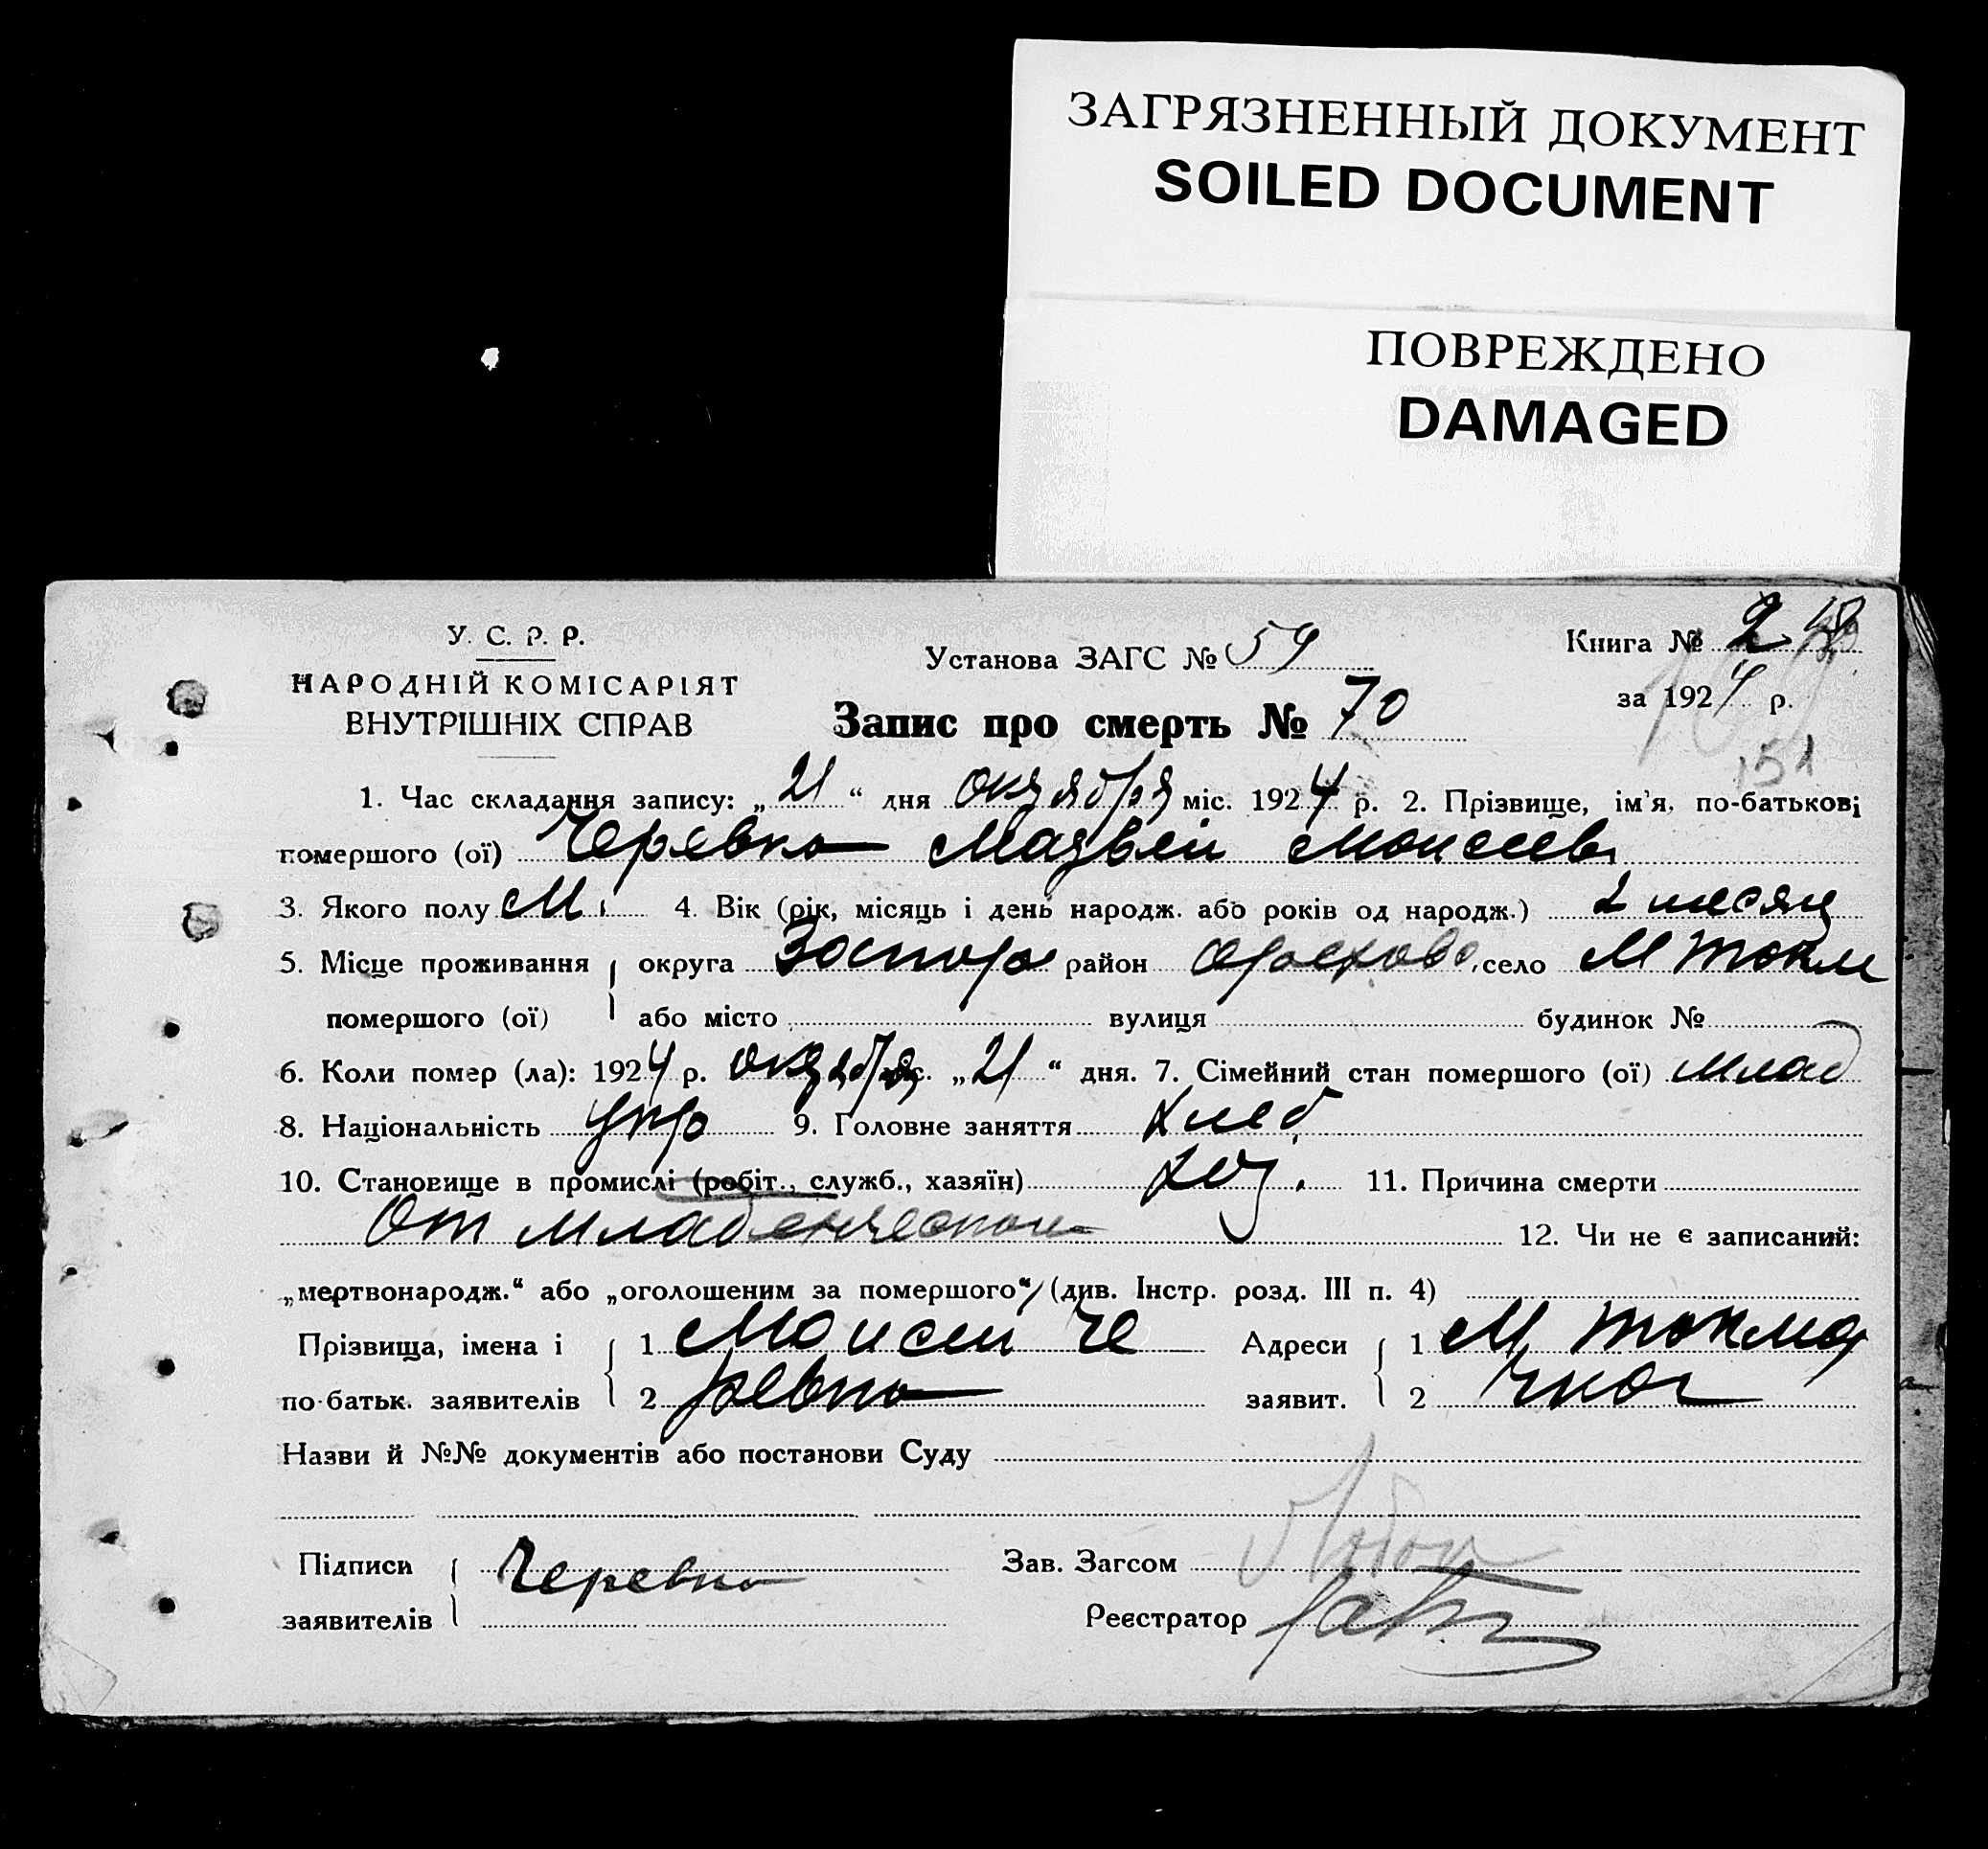 ЗАГРЯЗНЕННЫЙ ДОКУМЕНТ
SOILED DOCUMENT
ПОВРЕЖДЕНО
DAMAGED
У. С. Р. Р.
НАРОДНІЙ КОМІСАРІЯТ
ВНУТРІШНІХ СПРАВ
Установа ЗАГС № 59
Запис про смерть № 70
Книга № 2
за 1924 р.
151
1. Час складання запису: „21“ дня октября міс. 1924 р. 2. Прізвище, ім’я, по-батькові
помершого (ої) Черевко Матвей Моисеев
3. Якого полу М. 4. Вік (рік, місяць і день народж. або років од народж.) 2 месяц
5. Місце проживання округа Запоро район Орехово, село М Токм
помершого (ої) або місто вулиця будинок №
6. Коли помер (ла): 1924 р. октября „21“ дня. 7. Сімейний стан помершого (ої) млад
8. Національність укр 9. Головне заняття хлеб
10. Становище в промислі (робіт., служб., хазяїн) хоз. 11. Причина смерти
От младенческой 12. Чи не є записаний:
„мертвонародж.“ або „оголошеним за помершого“ (див. Інстр. розд. III п. 4)
Прізвища, імена і 1 Моисей Че Адреси 1 М Токма
по-батьк. заявителів 2 ревко заявит. 2 чког
Назви й №№ документів або постанови Суду
Підписи Черевко Зав. Загсом
заявителів Реєстратор